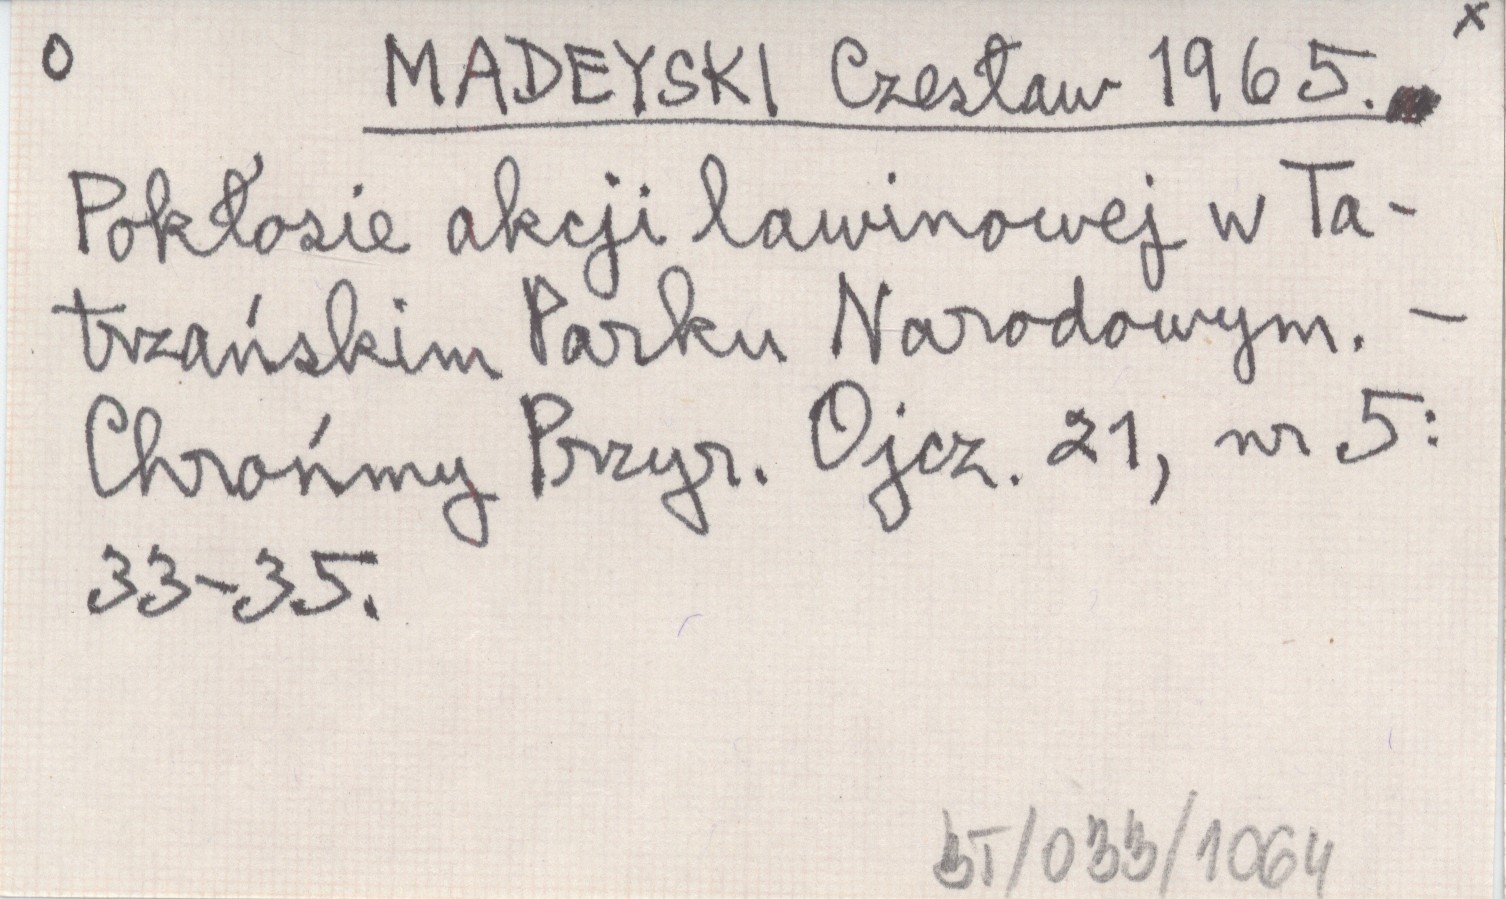 O
x
MADEYSKI Czesław 1965.
Pokłosie akcji lawinowej w Ta-
trzańskim Parku Narodowym. –
Chrońmy Przyr. Ojcz. 21, nr 5:
33-35.
BT/033/1064